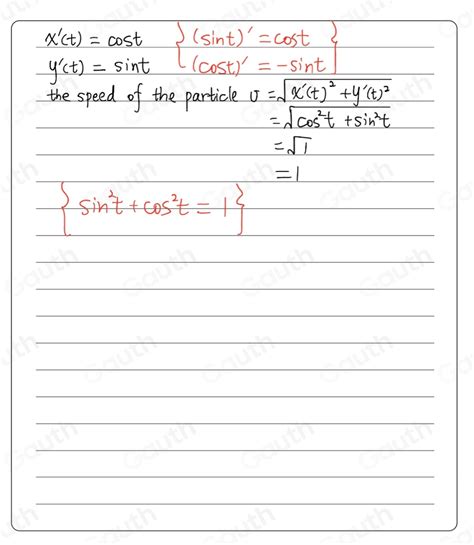 x'(t) = cost { (sint)' = cost }
y'(t) = sint { (cost)' = -sint }
the speed of the particle v = √x'(t)² + y'(t)²
= √cos²t + sin²t
= √1
= 1
{ sin²t + cos²t = 1 }
Gauth